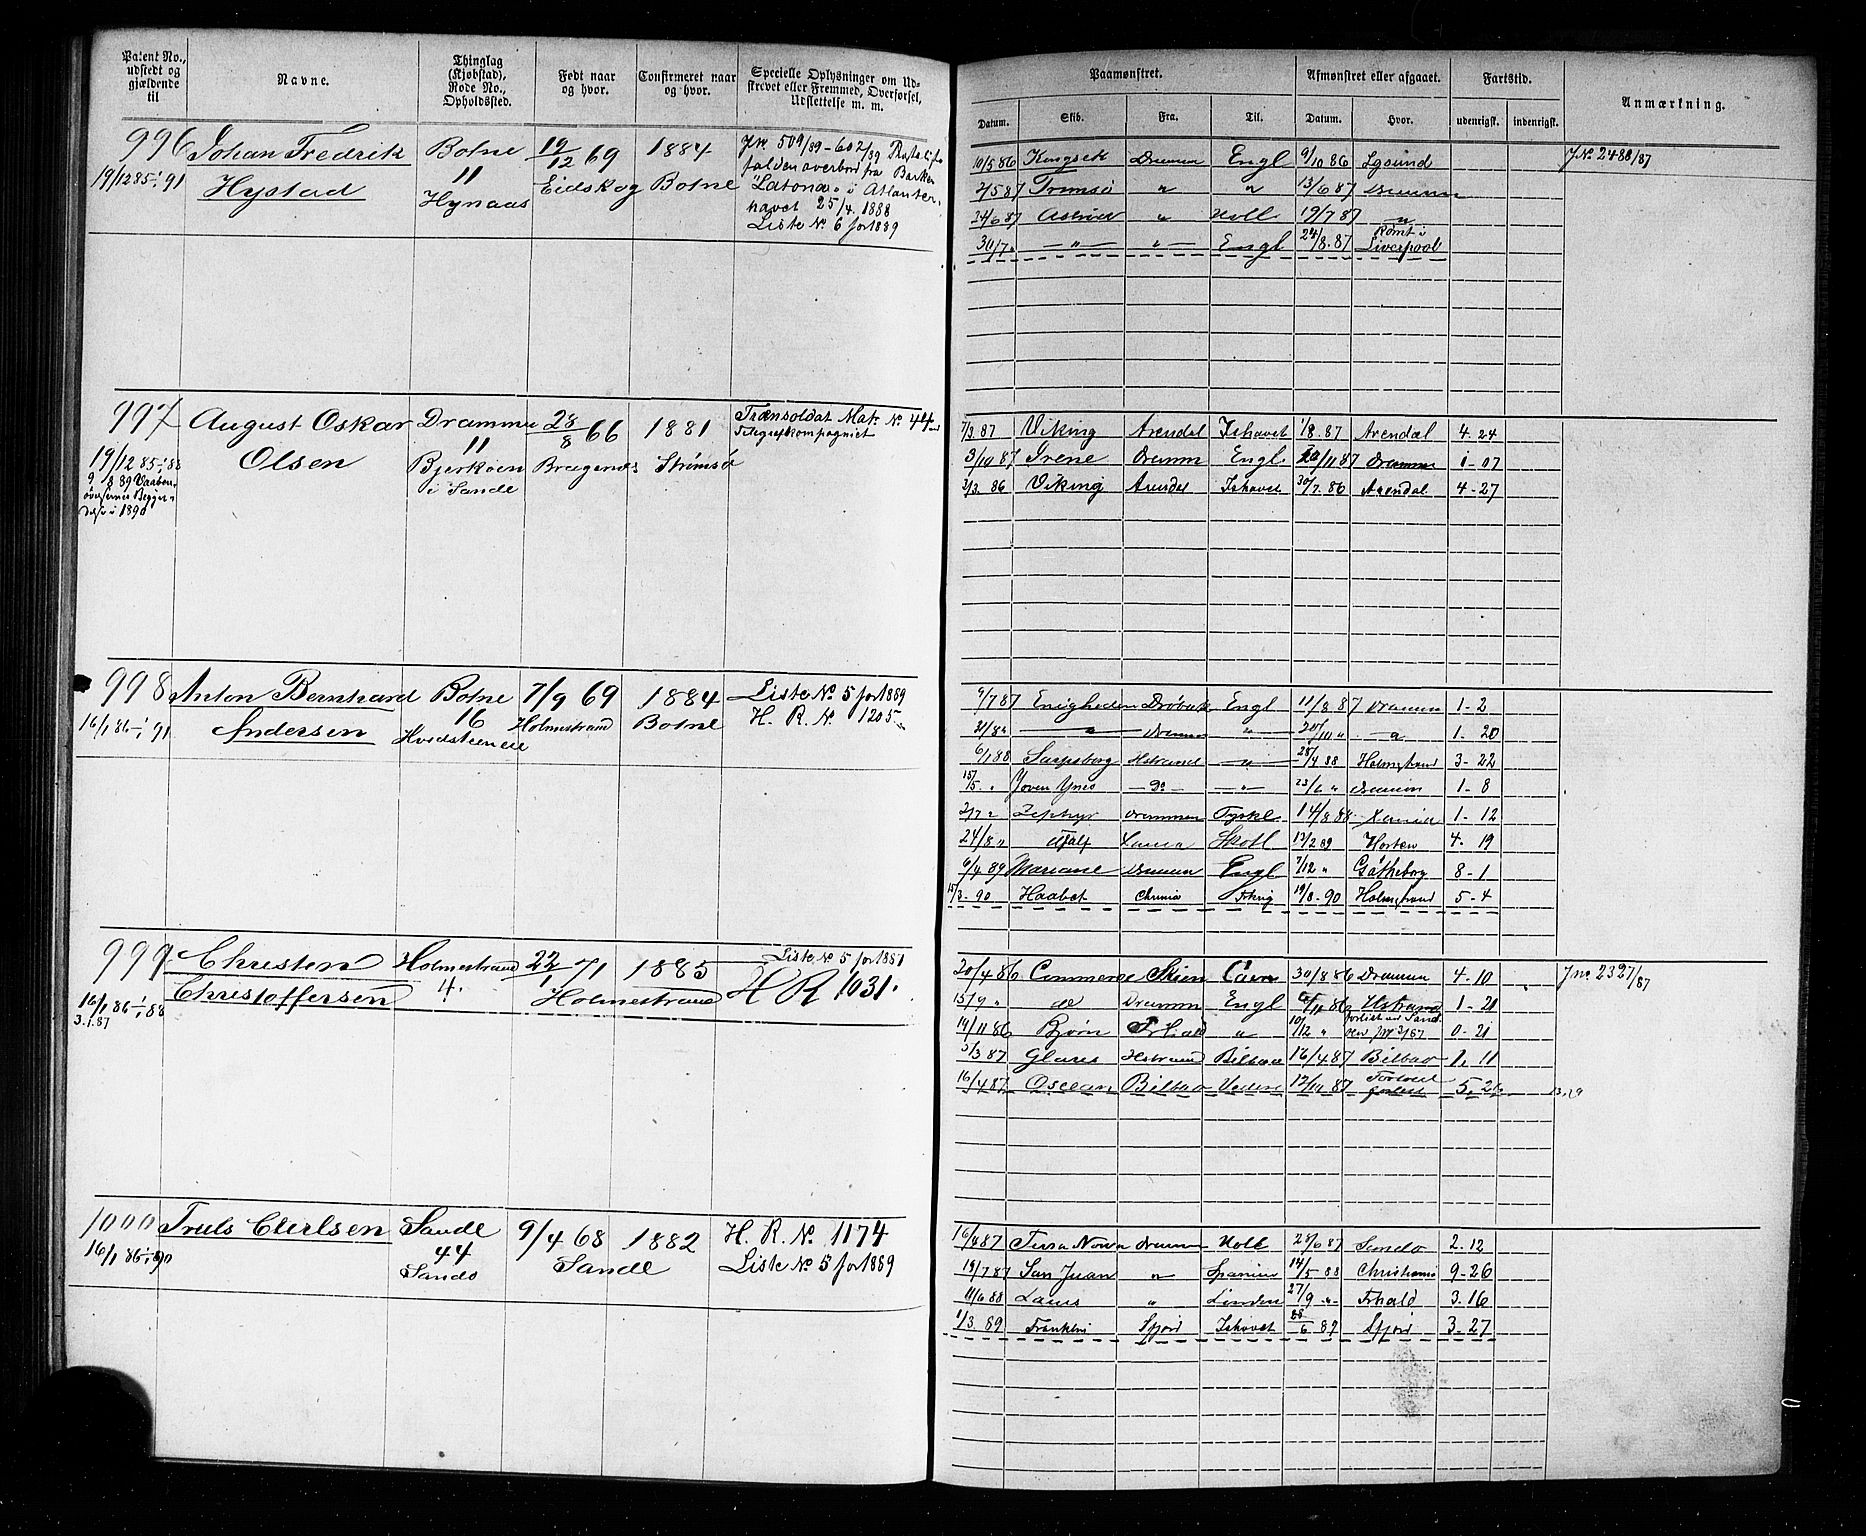 Patent No., udstedt og gjældende til
Navne.
Thinglag (Kjøbstad), Rode No., Opholdssted.
Født naar og hvor.
Confirmeret naar og hvor.
Specielle Oplysninger om Udstrevet eller Fremmed, Overførsel, Udslettelse m. m.
Paamønstret.
Afmønstret eller afgaaet.
Fartstid.
Anmærkning.
Datum. Skib. Fra. Til. Datum. Hvor. udenrigsk. indenrigsk.
996 Johan Fredrik Hystad
19/12 85-1/1 91
Botne 11 Hynaas
19/12 69 Eidskog
1884 Botne
J.N. 509/89-602/89
falden overbord fra Barken
"Latona" i Atlanter-
havet 25/4 1888
Liste No 6 for 1889
10/5 86 Drammen Engl 9/10 86
J.No. 2488/87
2/5 87 Tromsø " " 13/6 87 Drammen
24/6 87 " Holl 19/7 87 "
30/7 " — " — " Engl 24/8. 87 Rømt i Liverpool
997 August Oskar Olsen
19/12 85-1/1 88
9/8 89 Vaaben-
i 1890
Drammen 11 Bjerkøen i Sande
28/8 66 Bragernes
1881 Strømsø
Trænsoldat Mat. No 44
Telegrafkompagniet
7/3. 87 Viking Arendal Ishavet 1/8. 87 Arendal 4. 24
3/10 87 Irene Dramm Engl. /11 87 Drammen 1-07
2/3. 86 Viking Arendal Ishavet 30/7. 86 Arendal 4-27
998 Anton Bernhard Andersen
16/1 86-1/1 91
Botne 16 Hvidsteineie
7/9 69 Holmestrand
1884 Botne
Liste No 5 for 1889
H. R. No 1205
9/7 87 Enigheden Drøbak Engl 11/8 87 Drammen 1-2
— " — Drammen " " — " 1. 20
6/1 88 Sarpsborg Hstrand — " — 28/4 88 Holmstrand 3-22
15/5. " Ynes — Do — — " — 23/6 " Drammen 1-8
2/7 " Zephyr Drammen Tyskl. 14/8 88 Xania 1-12
24/8 " Xania Skotl 12/2 89 Horten 4. 19
6/4 89 Mariane Drammen Engl 7/12 " Gøtheborg 8-1
15/3. 90 Haabet Chrnia 19/8-90 Holmstrand 5-4
999 Christen Christoffersen
16/1 86-1/1 88
3.1.87
Holmestrand 4.
22/1 71 Holmestrand
1885
Liste No 5 for 1881
H R 1031.
20/4 86 Commerce Skien Caen 30/8 86 Drammen 4. 10
J.no. 2327/87
15/9 " do Dramm Engl /11 86 Hstrand 1-21
14/11 86 Bjørn Frhald " 10/12 " 0-21
5/3 87 Hstrand Bilbao 16/4 87 Bilbao 1, 11
16/4 87 Oscean Bilbao 12/10 87 5. 26
1000 Truls Carlsen
16/1 86-1/1 90
Sande 44 Sande
9/4 68 Sande
1882
H. R. No. 1174
Liste No 5 for 1889
16/4 87 Terra Nova Drammen Holl 28/6 87 Sande 2. 12
19/7 87 San Juan " Spanien 14/5 88 Christiania 9-26
11/6 88 " London 27/9 " Frhald 3. 16
1/3. 89 Franklin Sfjord Ishavet 28/6 89 Sfjord 3. 27